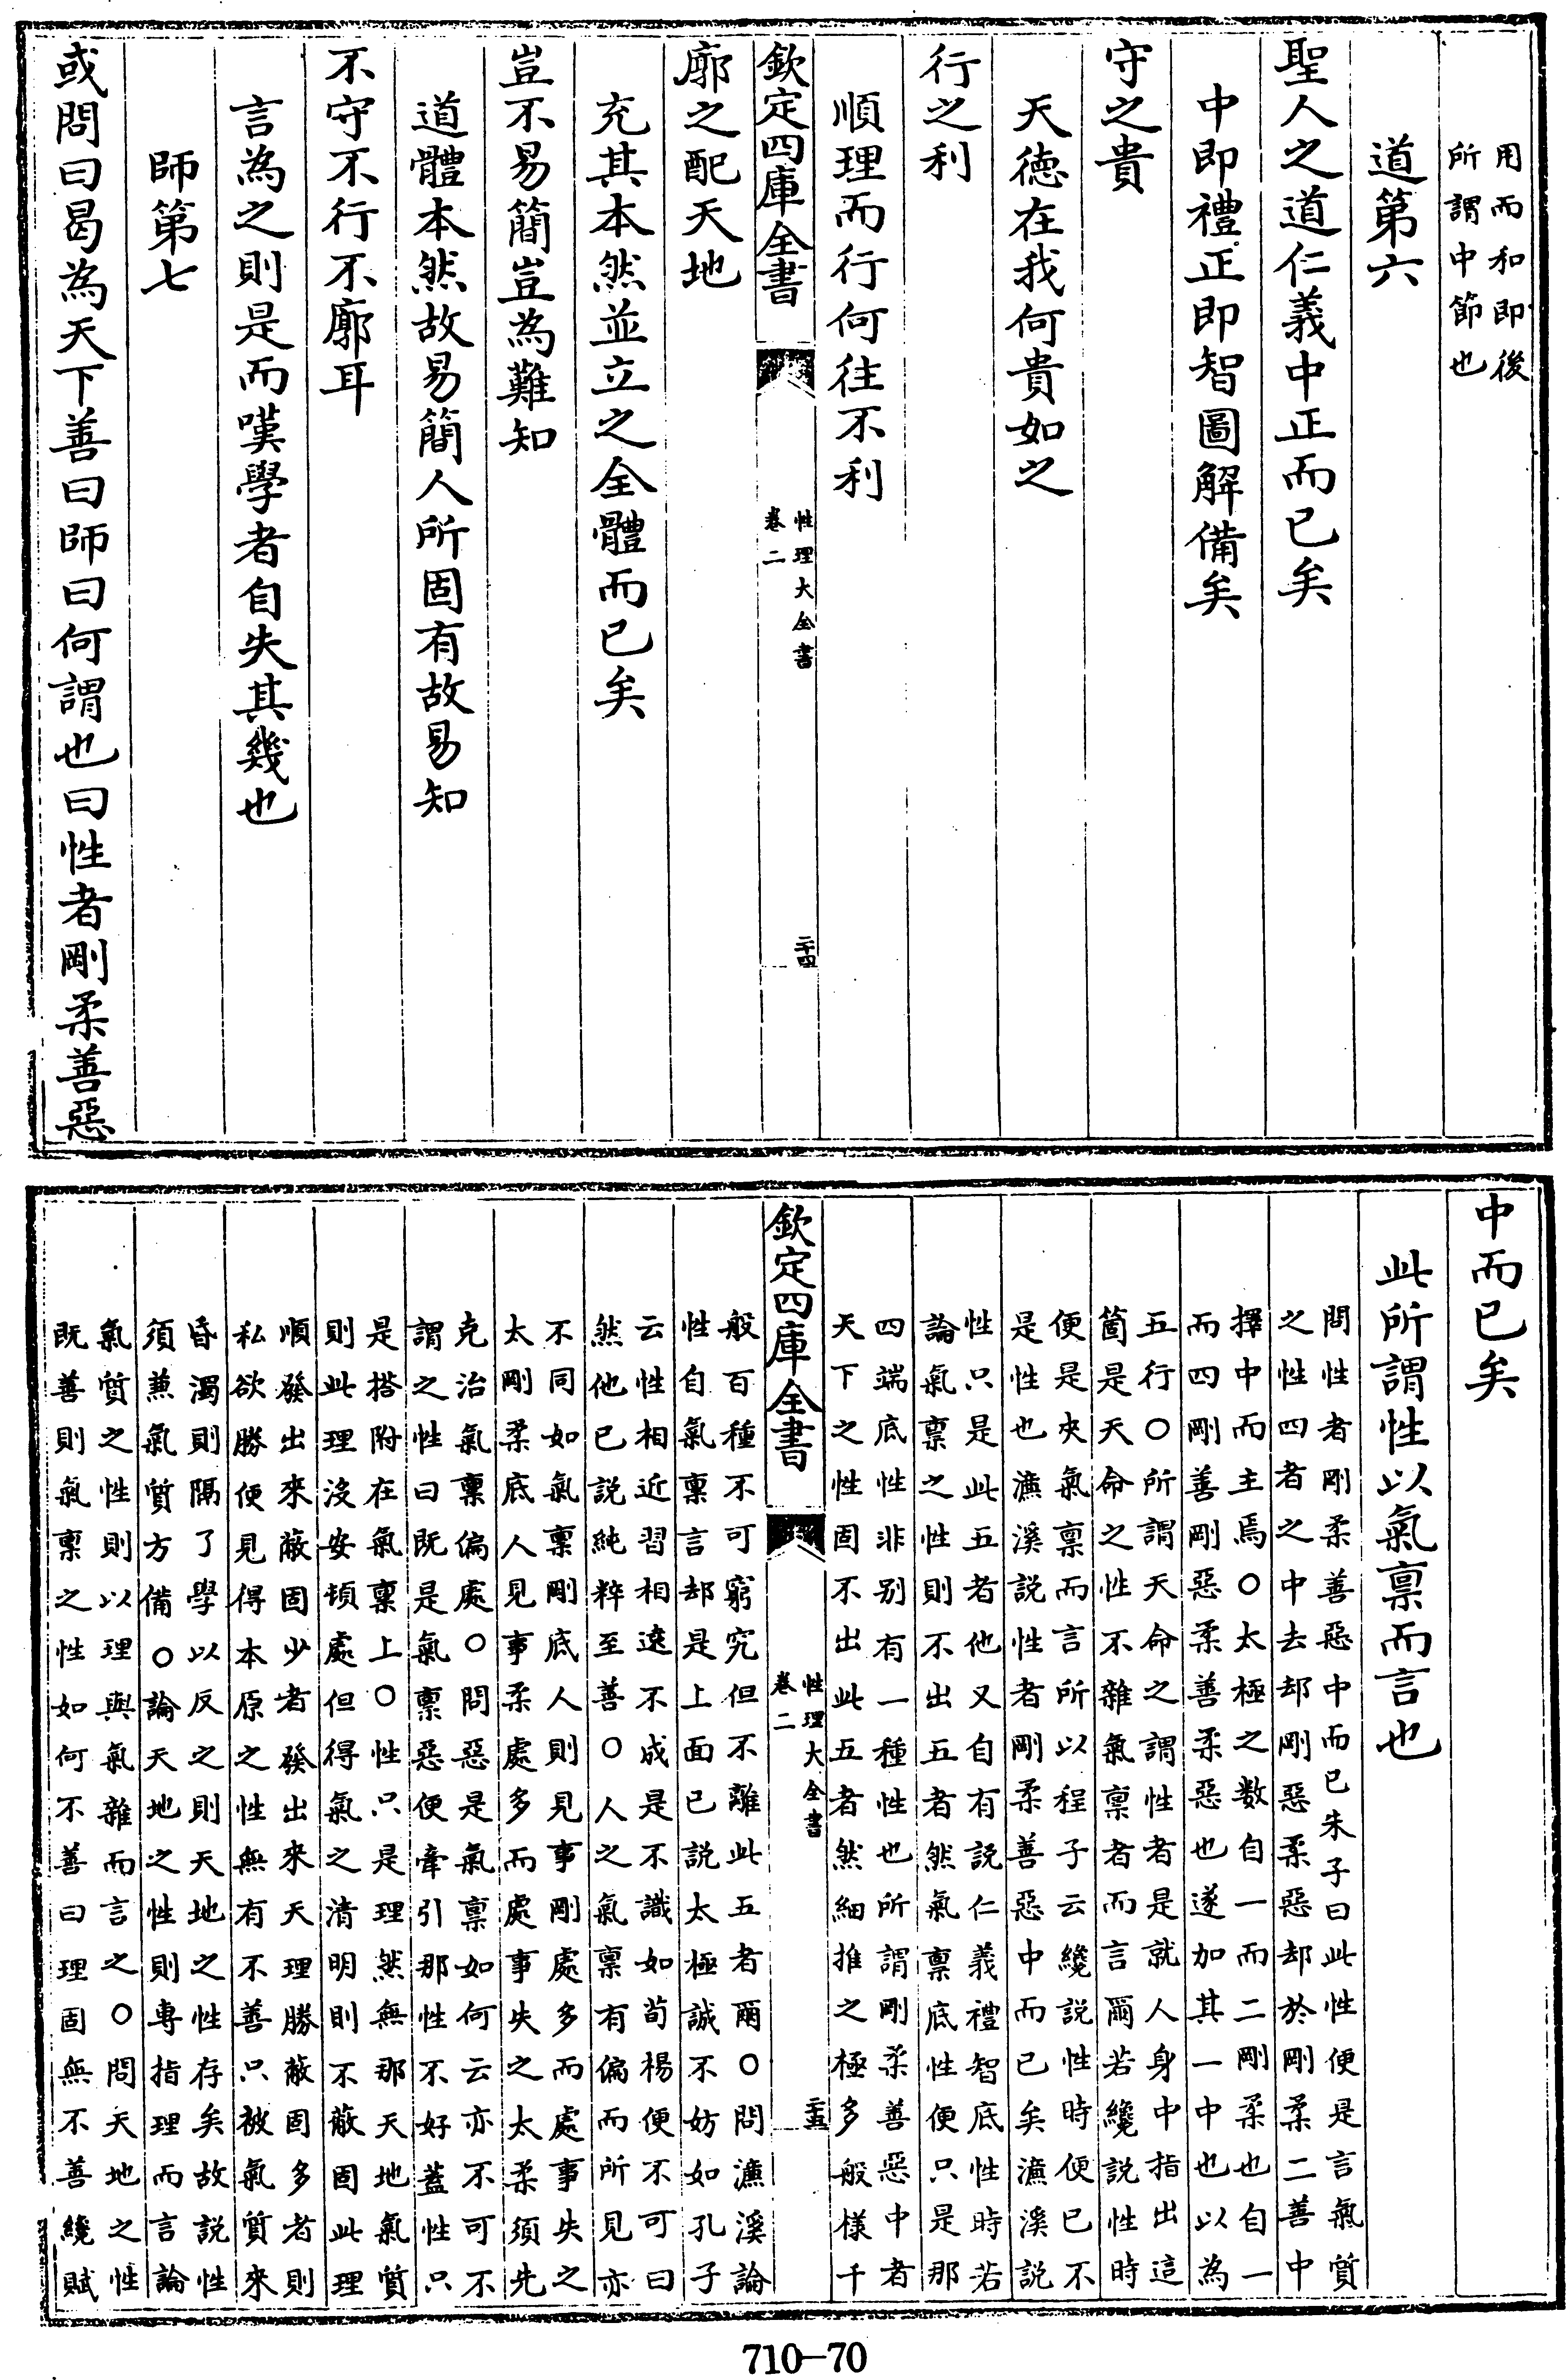 用而和即後
所謂中節也
道第六
聖人之道仁義中正而已矣
中即禮正即智圖解備矣
守之貴
天德在我何貴如之
行之利
順理而行何往不利
欽定四庫全書
性理大全書
卷二
二十四
廓之配天地
充其本然並立之全體而已矣
豈不易簡豈為難知
道體本然故易簡人所固有故易知
不守不行不廓耳
言為之則是而嘆學者自失其幾也
師第七
或問曰曷為天下善曰師曰何謂也曰性者剛柔善惡
中而已矣
此所謂性以氣稟而言也
問性者剛柔善惡中而已朱子曰此性便是言氣質
之性四者之中去却剛惡柔惡却於剛柔二善中
擇中而主焉○太極之數自一而二剛柔也自一
而四剛善剛惡柔善柔惡也遂加其一中也以為
五行○所謂天命之謂性者是就人身中指出這
箇是天命之性不雜氣稟者而言爾若纔說性時
便是夾氣稟而言所以程子云纔說性時便已不
是性也濂溪說性者剛柔善惡中而已矣濂溪說
性只是此五者他又自有說仁義禮智底性時若
論氣稟之性則不出五者然氣稟底性便只是那
四端底性非别有一種性也所謂剛柔善惡中者
天下之性固不出此五者然細推之極多般樣千
欽定四庫全書
性理大全書
卷二
二十五
般百種不可窮究但不離此五者爾○問濂溪論
性自氣稟言却是上面已說太極誠不妨如孔子
云性相近習相遠不成是不識如荀楊便不可曰
然他已說純粹至善○人之氣稟有偏而所見亦
不同如氣稟剛底人則見事剛處多而處事失之
太剛柔底人見事柔處多而處事失之太柔須先
克治氣稟偏處○問惡是氣稟如何云亦不可不
謂之性曰既是氣稟惡便牽引那性不好蓋性只
是搭附在氣稟上○性只是理然無那天地氣質
則此理沒安頓處但得氣之清明則不蔽固此理
順發出來蔽固少者發出來天理勝蔽固多者則
私欲勝便見得本原之性無有不善只被氣質來
昏濁則隔了學以反之則天地之性存矣故說性
須兼氣質方備○論天地之性則專指理而言論
氣質之性則以理與氣雜而言之○問天地之性
既善則氣稟之性如何不善曰理固無不善纔賦
710—70